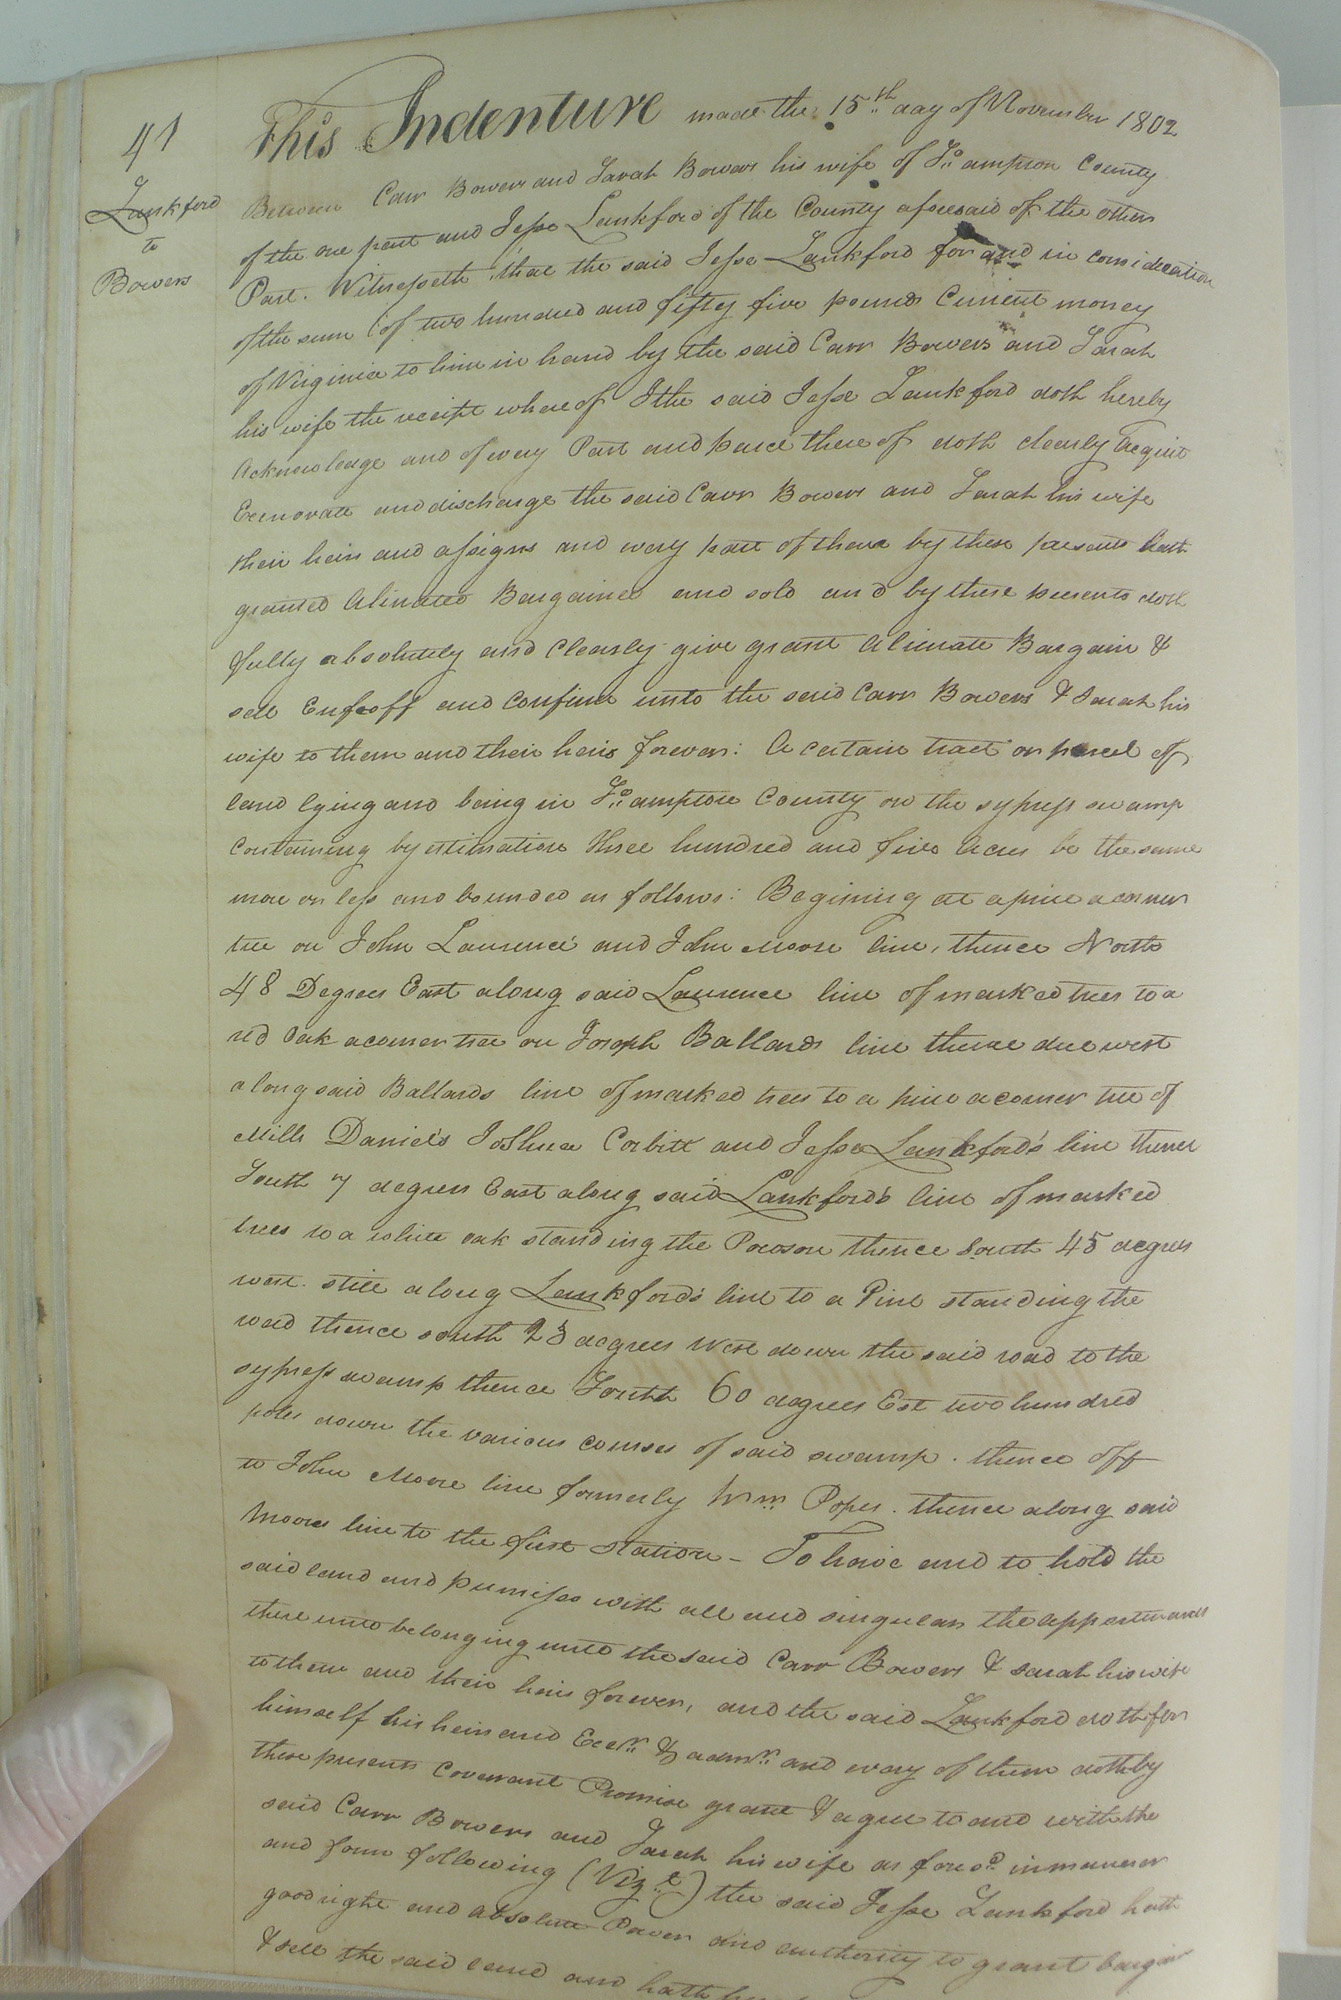 41
Lankford
to
Bowers
This Indenture made the 15th day of November 1802
Between Carr Bowers and Sarah Bowers his wife of So.ampton County
of the one part and Jesse Lankford of the County aforesaid of the other
Part. Witnesseth that the said Jesse Lankford for and in consideration
of the sum of two hundred and fifty five pounds Current money
of Virginia to him in hand by the said Carr Bowers and Sarah
his wife the receipt whereof I the said Jesse Lankford doth hereby
Acknowledge and of every Part and parce thereof doth clearly acquit
Exenorate and discharge the said Carr Bowers and Sarah his wife
their heirs and assigns and every part of them by these presents hath
granted Alinated Bargained and sold and by these presents doth
fully absolutely and clearly give grant Alienate Bargain &
sell Enfeoff and confirm unto the said Carr Bowers & Sarah his
wife to them and their heirs forever: A certain tract or parcel of
land lying and being in So.ampton County on the sypress swamp
containing by estimation three hundred and five Acres be the same
more or less and bounded as follows: Begining at a pine a corner
tree on John Laurence and John Moore line, thence North
48 Degrees East along said Laurence line of marked trees to a
red oak a corner tree on Joseph Ballards line thence due west
along said Ballards line of marked trees to a pine a corner tree of
Mills Daniel's Joshua Corbitt and Jesse Lankford's line thence
South 7 degrees East along said Lankford's line of marked
trees to a white oak standing the Poroson thence South 45 degrees
west still along Lankford's line to a Pine standing the
road thence south 23 degrees West down the said road to the
sypress swamp thence South 60 degrees Est two hundred
poles down the various courses of said swamp. thence off
to John Moore line formerly Wm. Popes. thence along said
Moores line to the first station - To have and to hold the
said land and premises with all and singular the appertunances
there unto belonging unto the said Carr Bowers & Sarah his wife
to them and their heirs forever, and the said Lankford doth for
himself his heirs and Exers. & admrs. and every of them doth by
these presents Covenant Promise grant & agree to and with the
said Carr Bowers and Sarah his wife as foresd. in manner
and form following (Vizt.) the said Jesse Lankford hath
good right and absolute Power and authority to grant bargain
& sell the said land and hath